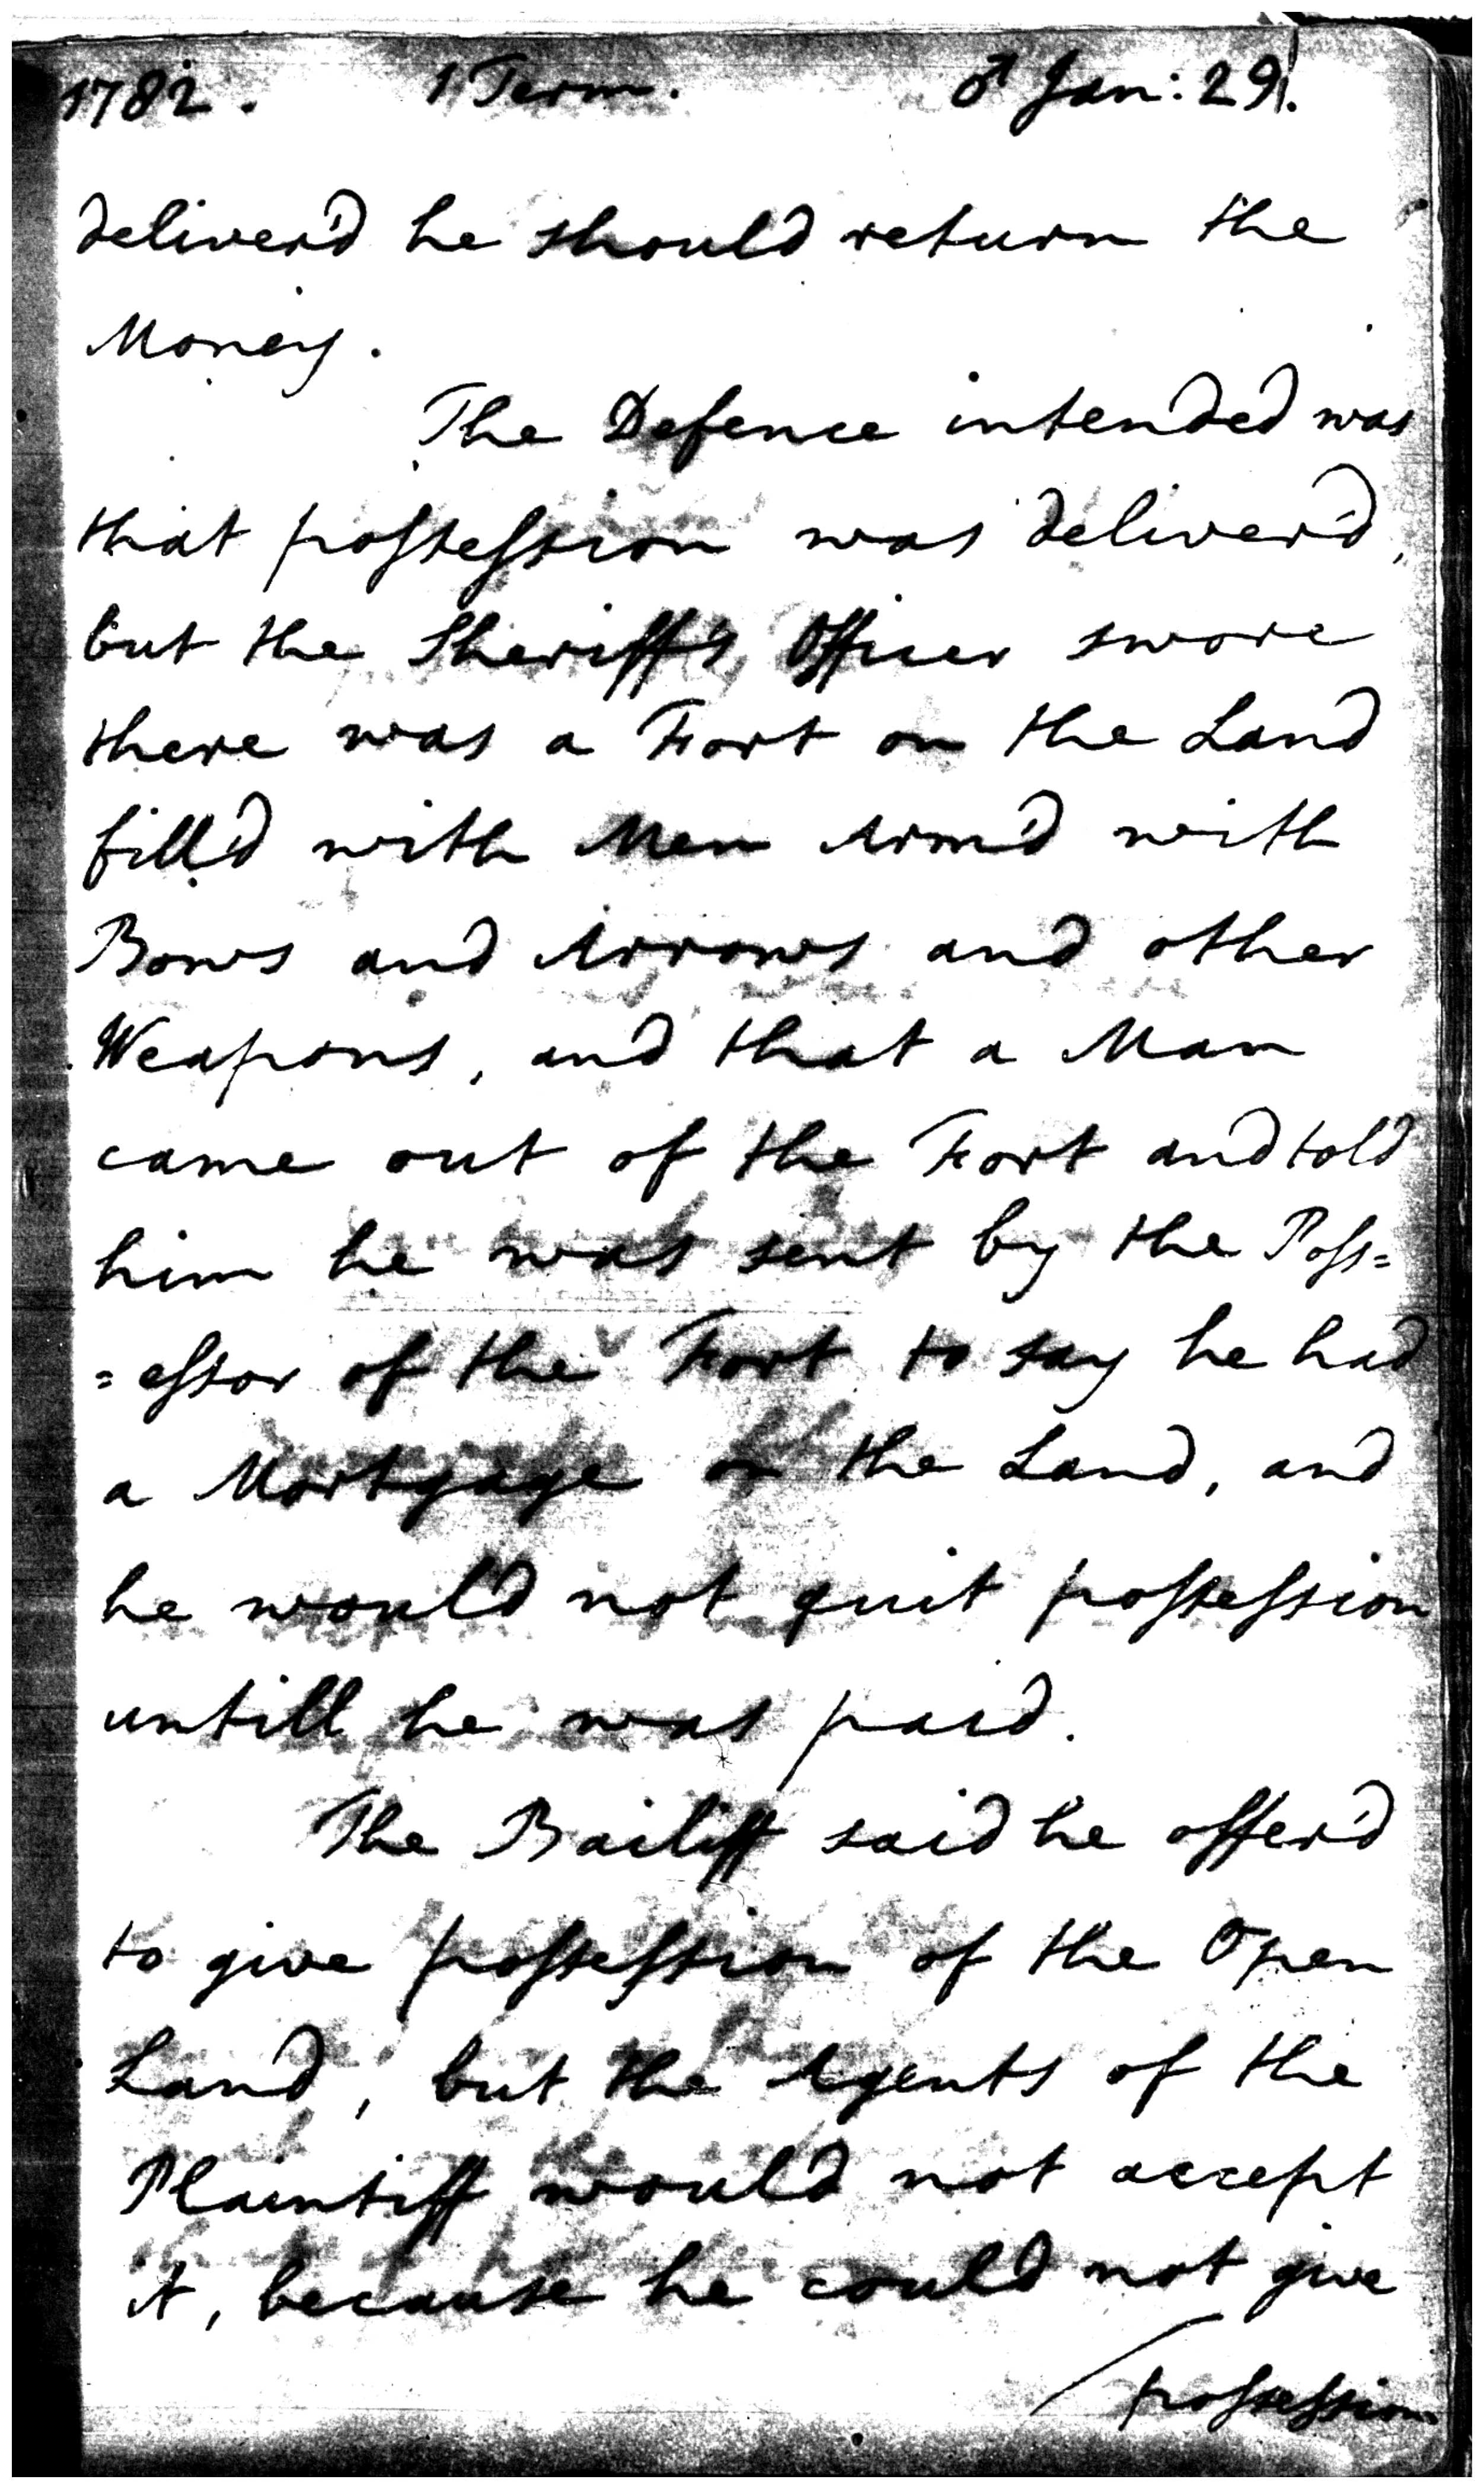 1782. 1 Term. ♂ Jan: 29.
deliver'd he should return the
Money.
The Defence intended was
that possession was deliver'd,
but the Sheriff's Officer swore
there was a Fort on the Land
fill'd with Men Arm'd with
Bows and Arrows and other
Weapons, and that a Man
came out of the Fort and told
him he was sent by the Poss=
=essor of the Fort to say he had
a Mortgage on the Land, and
he would not quit possession
untill he was paid.
The Bailiff said he offer'd
to give possession of the Open
Land, but the Agents of the
Plaintiff would not accept
it, because he could not give
possession